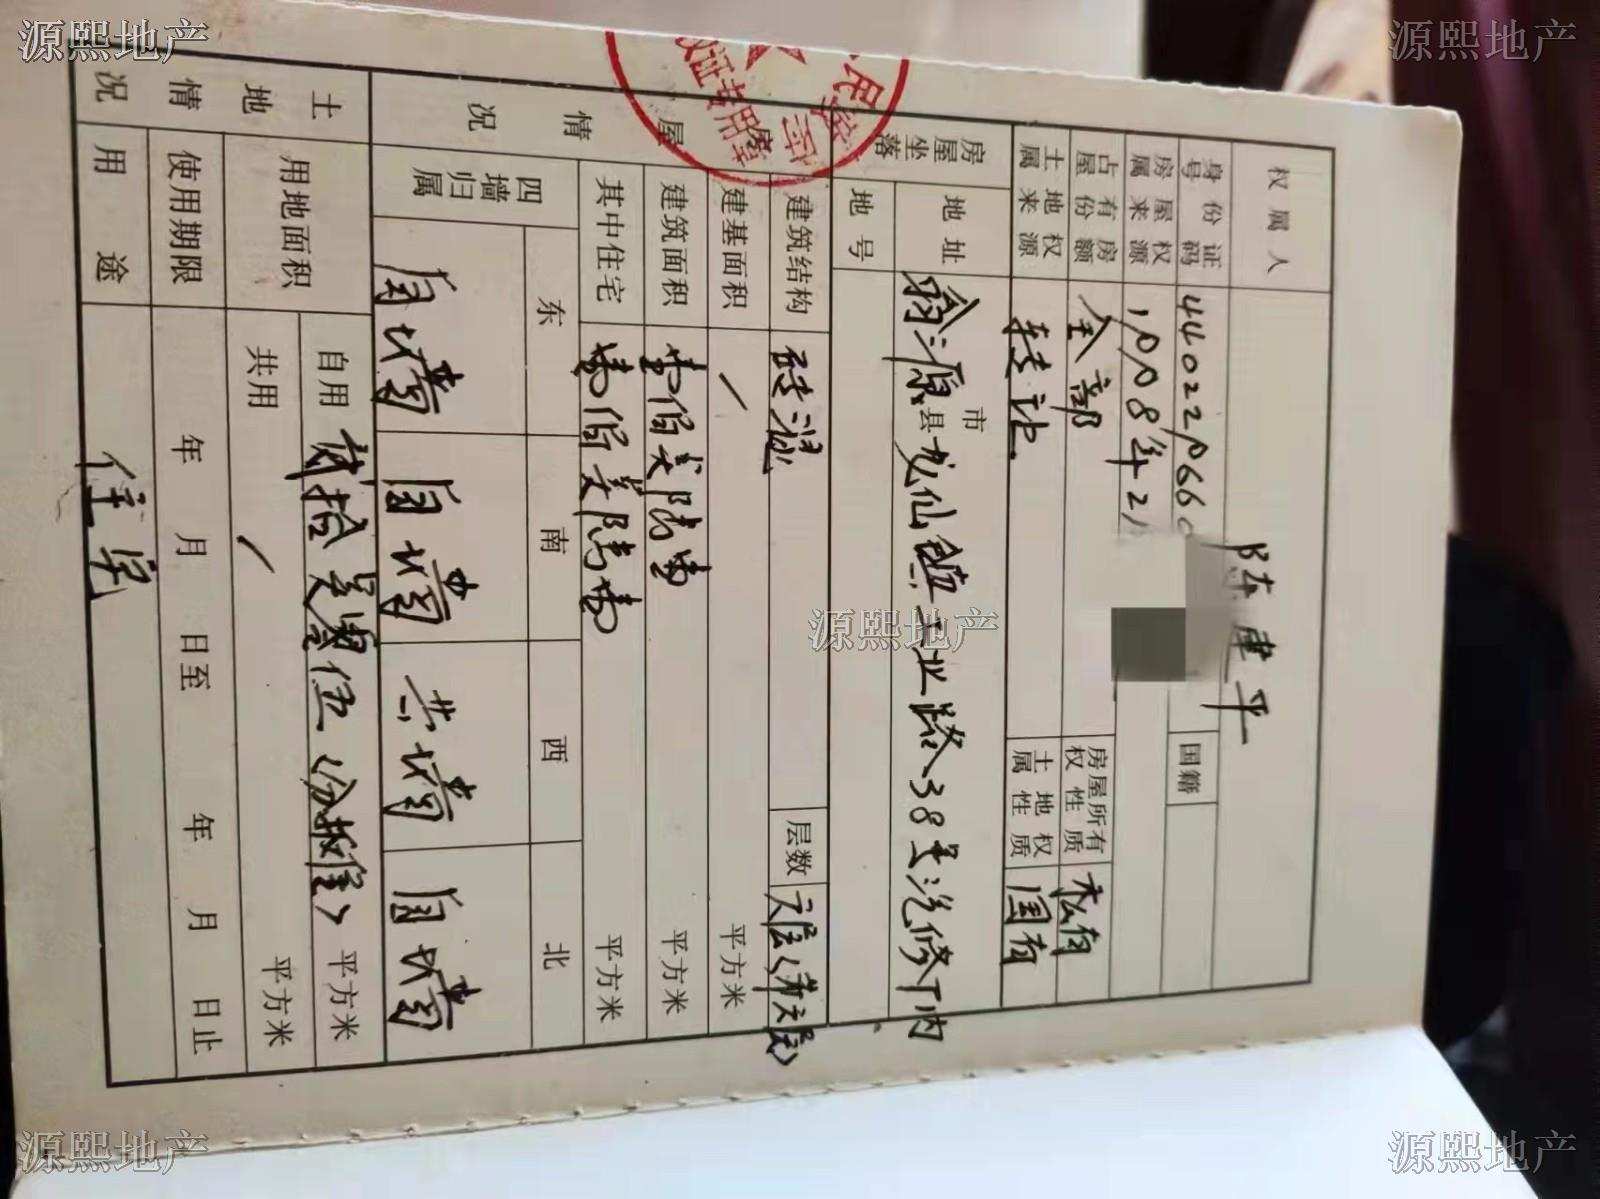 源熙地产
源熙地产
权属人 陈建平
身份证号码 440221066 国籍
房屋权属来源 1008年2月
占有房屋份额 全部 房屋所有权性质 私有
土地权属来源 转让 土地权属性质 国有
房屋坐落 地址 翁源市县龙仙镇工业路38号汽修厂内
地号
房屋情况 建筑结构 砖混 层数 六层(第六层)
建基面积 / 平方米
建筑面积 壹佰 平方米
其中住宅 壹佰 平方米
四墙归属 东 南 西 北
自墙 自墙 共墙 自墙
土地情况 用地面积 自用 贰拾 伍(分摊) 平方米
共用 / 平方米
使用期限 年 月 日至 年 月 日止
用途 住宅
权证专用章
源熙地产
源熙地产
源熙地产